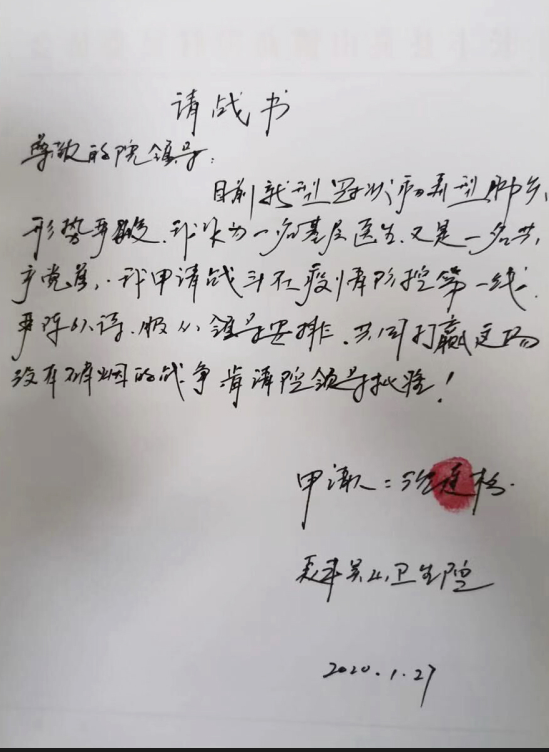 请战书
尊敬的院领导：
目前新型冠状病毒型肺炎，
形势严峻，我作为一名基层医生，又是一名共
产党员，我申请战斗在疫情防控第一线，
严阵以待，服从领导安排，共同打赢这场
没有硝烟的战争 肯请院领导批准！
申请人：连松
吴山卫生院
2020.1.27